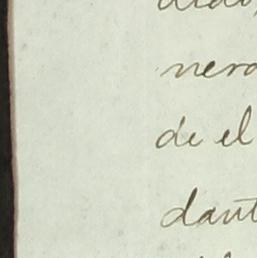 nero
de el
dant